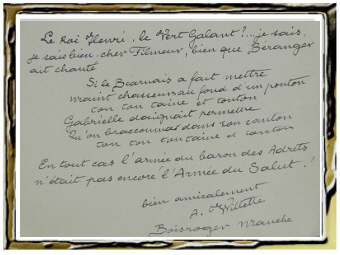 Le Roi Henri, le Vert Galant ?... je sais,
je sais bien, cher Tilmeur, bien que Béranger
ait chanté
Si le Béarnais a fait mettre
maint chasseur au fond d'un ponton
ton ton taine et tonton
Gabrielle daignait permettre
Qu'on braconnas dans son canton
ton ton tontaine et tonton
En tout cas l'armée du baron des Adrets
n'était pas encore l'Armée du Salut !
bien amicalement
A. Willette
Boisroger Manche